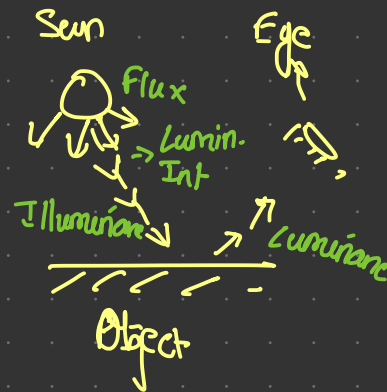 Sun
Eye
Flux
=> Lumin.
Int
Illuminanc
Luminanc
Object